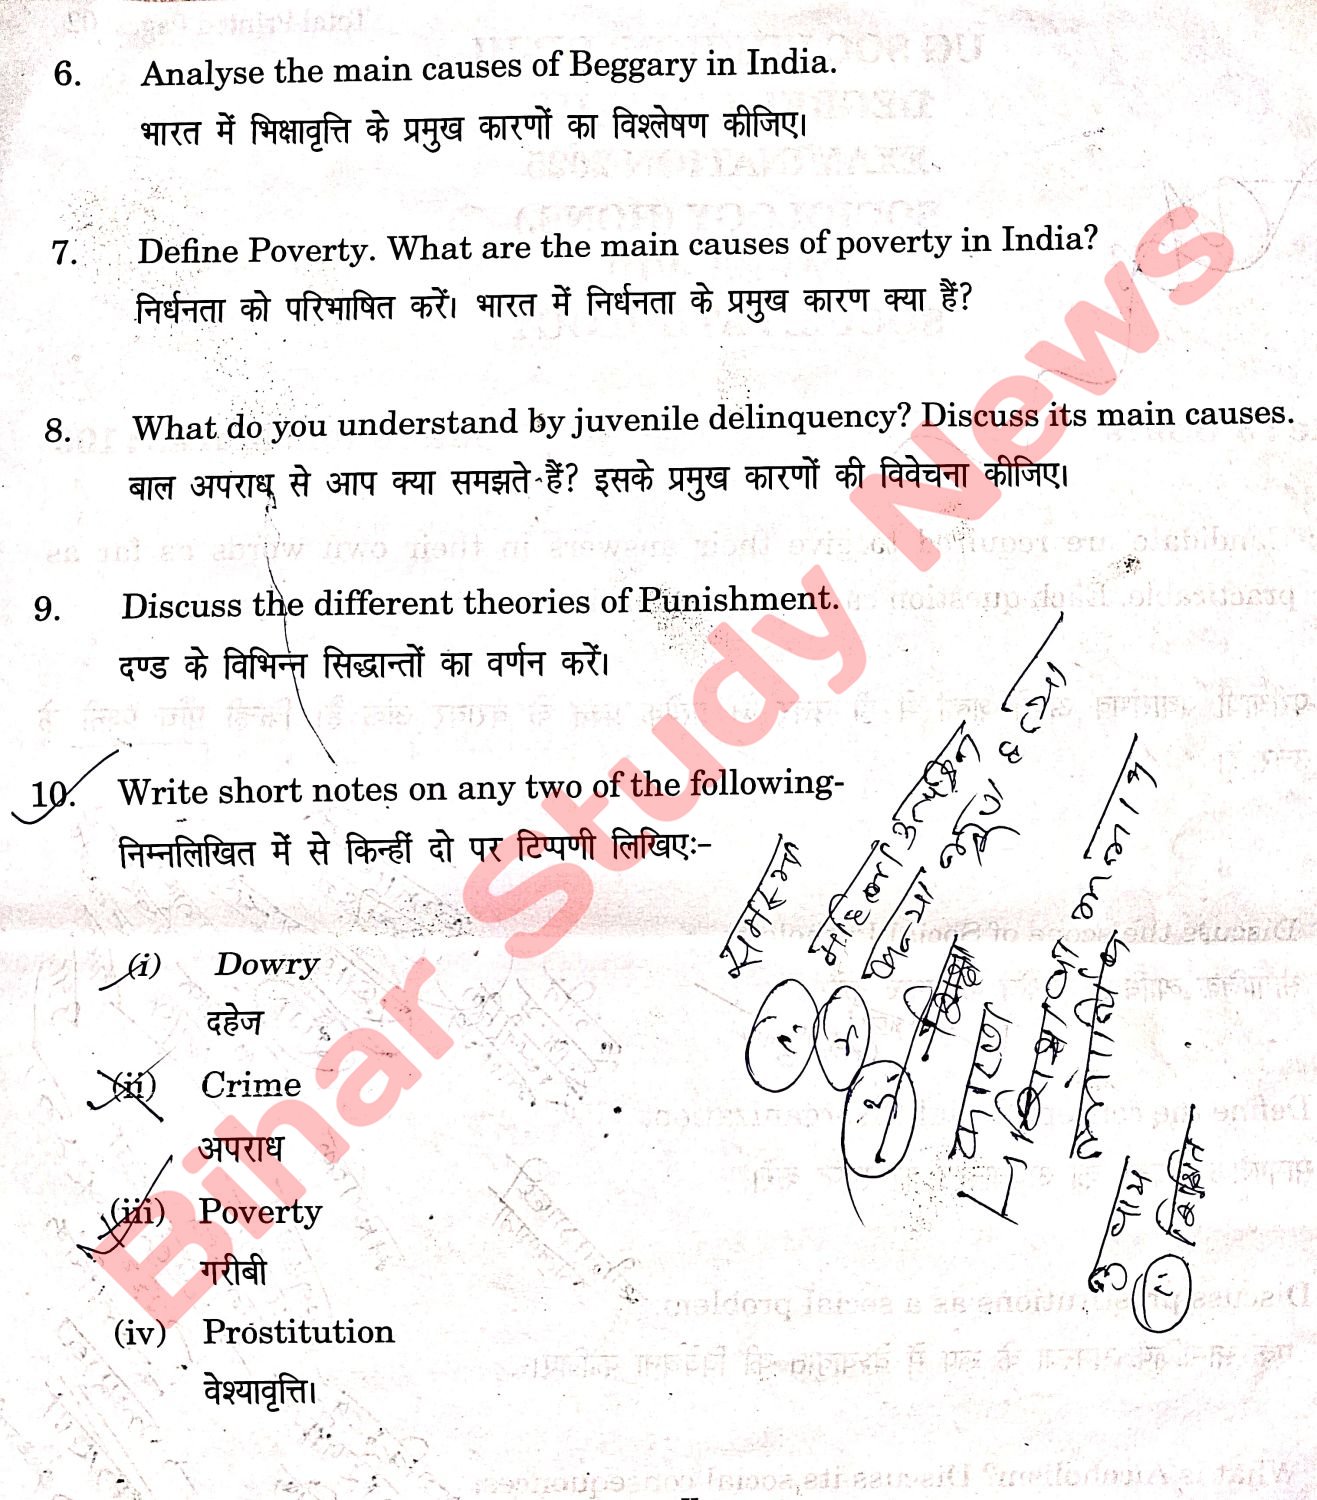 6. Analyse the main causes of Beggary in India.
भारत में भिक्षावृत्ति के प्रमुख कारणों का विश्लेषण कीजिए।
7. Define Poverty. What are the main causes of poverty in India?
निर्धनता को परिभाषित करें। भारत में निर्धनता के प्रमुख कारण क्या हैं?
8. What do you understand by juvenile delinquency? Discuss its main causes.
बाल अपराध से आप क्या समझते हैं? इसके प्रमुख कारणों की विवेचना कीजिए।
9. Discuss the different theories of Punishment.
दण्ड के विभिन्न सिद्धान्तों का वर्णन करें।
10. Write short notes on any two of the following-
निम्नलिखित में से किन्हीं दो पर टिप्पणी लिखिए:-
(i) Dowry
दहेज
(ii) Crime
अपराध
(iii) Poverty
गरीबी
(iv) Prostitution
वेश्यावृत्ति।
महिला उत्पीड़न
कन्या भ्रूण हत्या
अशिक्षा
कारण
उपाय
शिक्षित
Bihar Study News